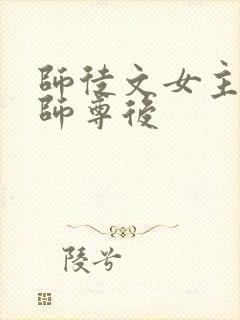 師徒文女主
師尊後
陵兮